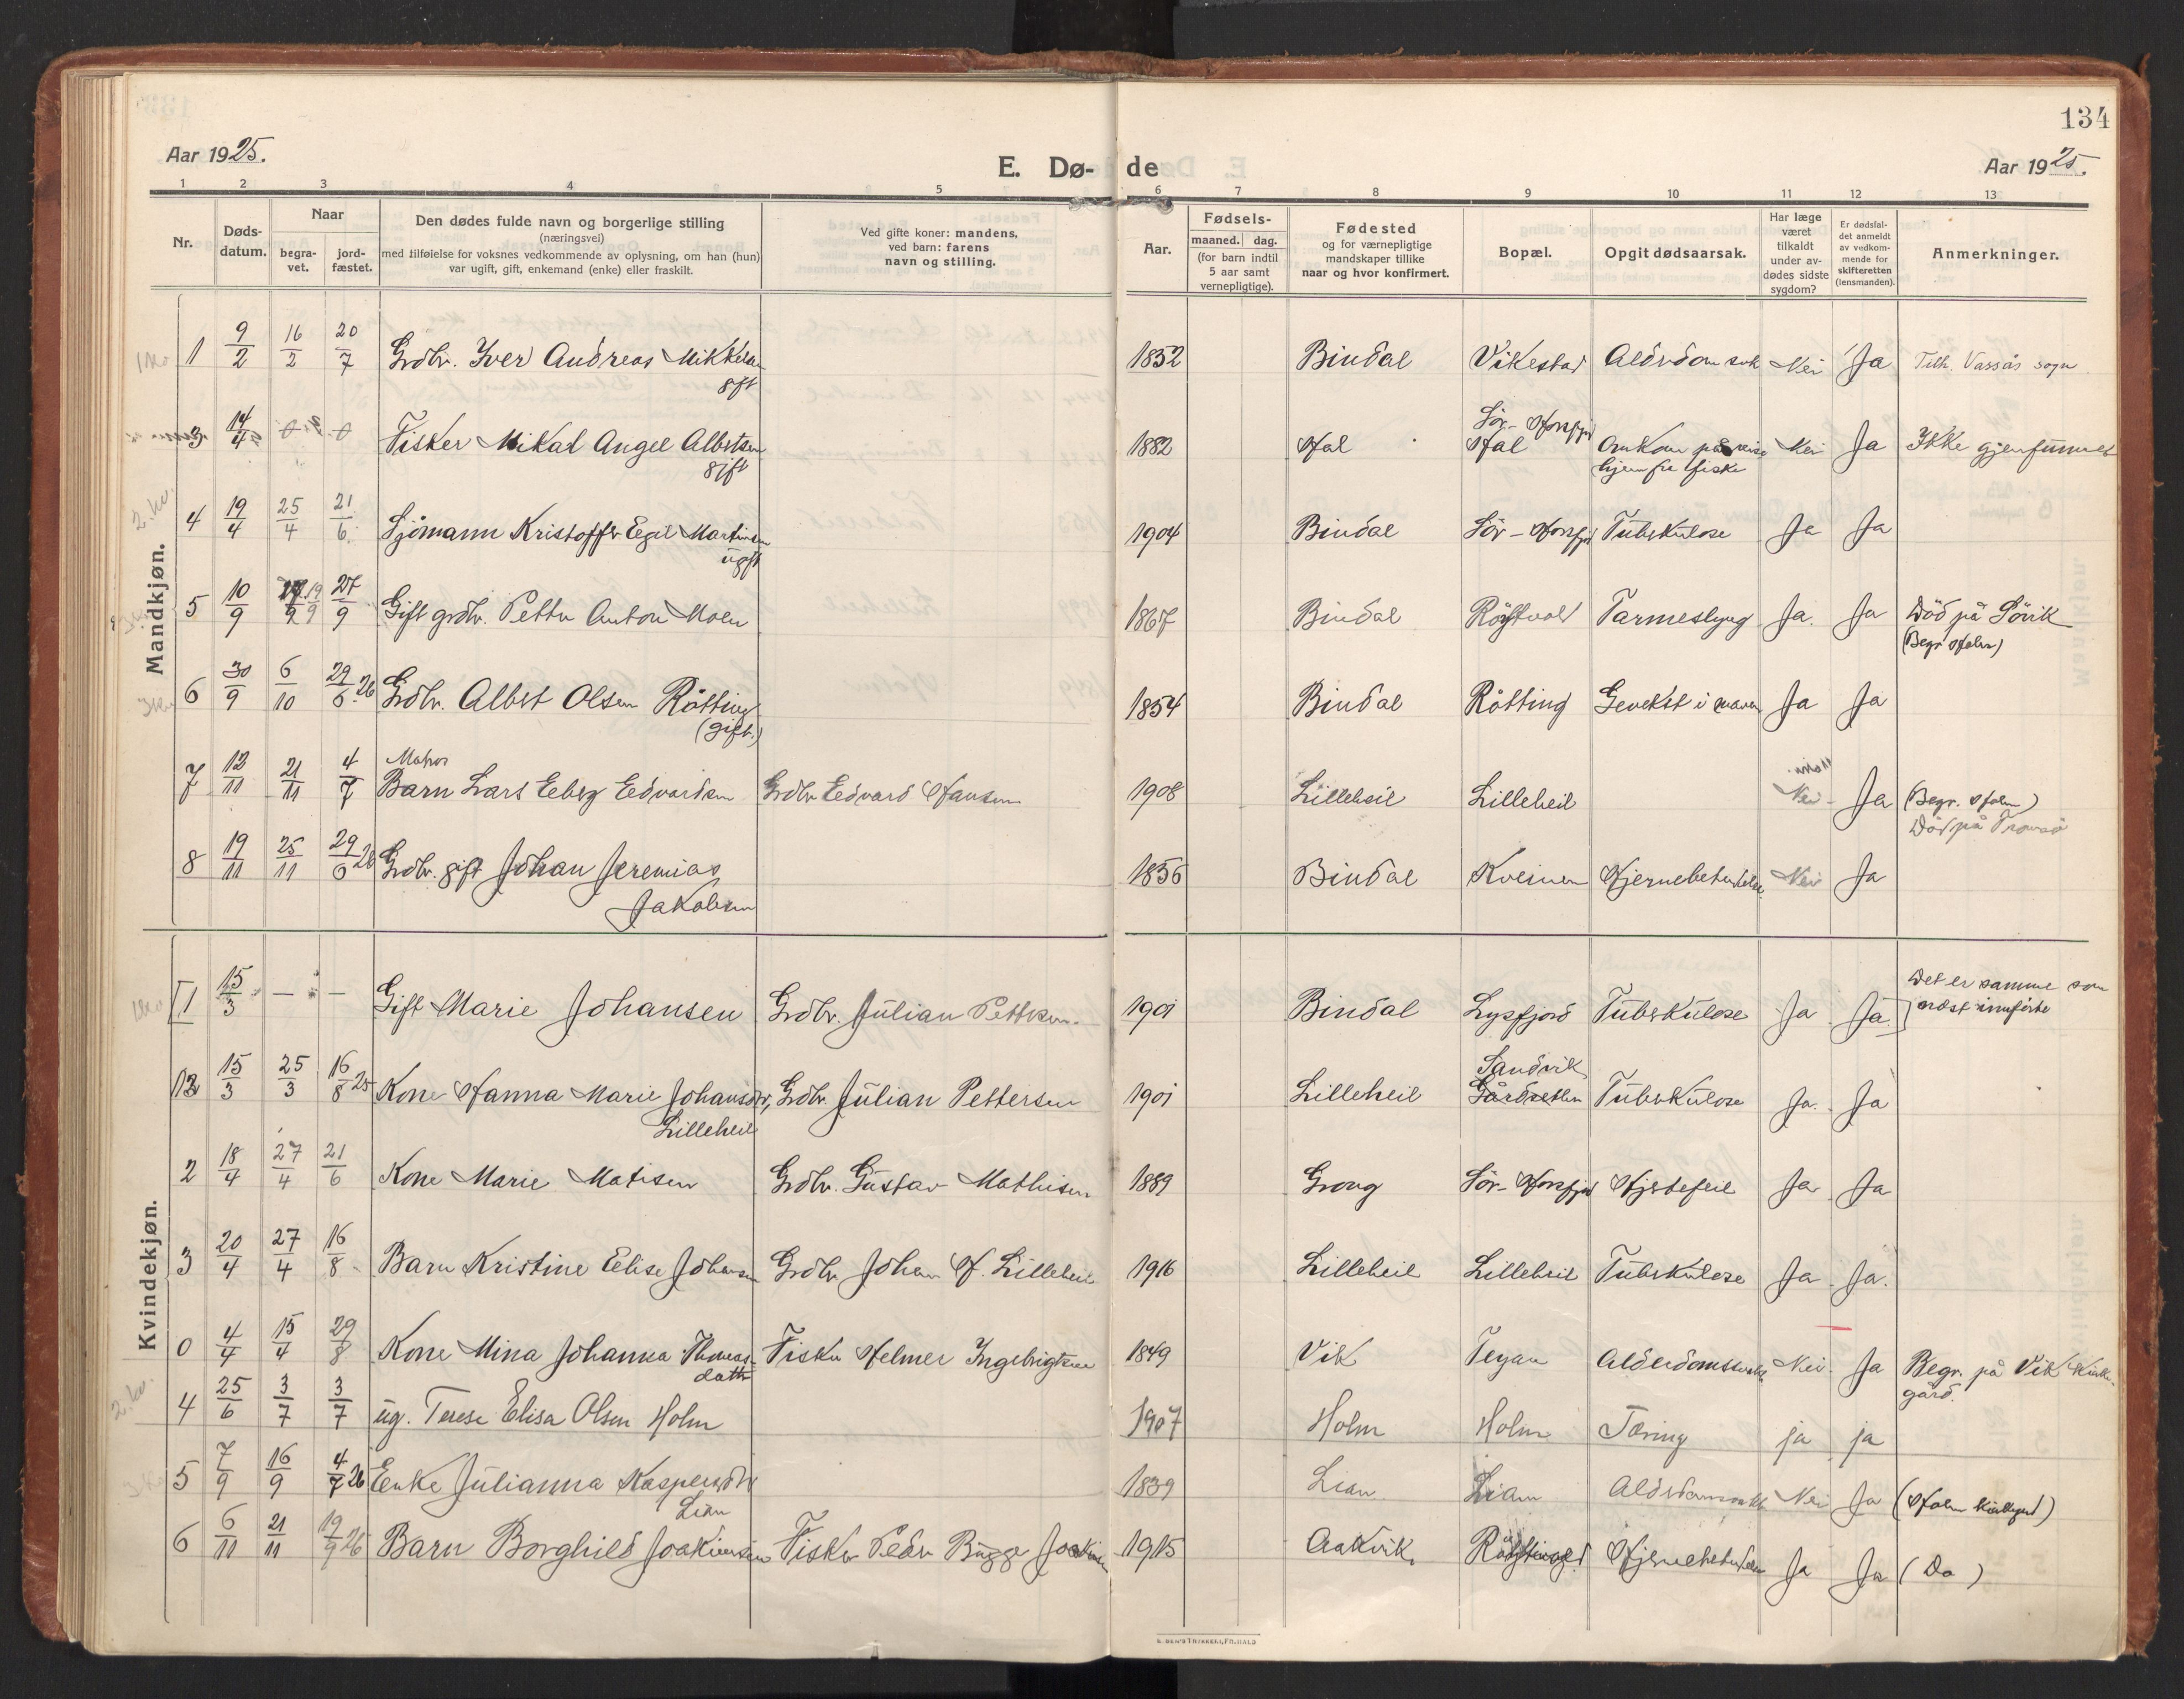 134
Aar 1925.
E. Dø- de
Aar 1925.
1 2 3 4 5 6 7 8 9 10 11 12 13
Nr.
Døds-
datum.
Naar
begra-
vet.
jord-
fæstet.
Den dødes fulde navn og borgerlige stilling
(næringsvei)
med tilføielse for voksnes vedkommende av oplysning, om han (hun)
var ugift, gift, enkemand (enke) eller fraskilt.
Ved gifte koner: mandens,
ved barn: farens
navn og stilling.
Aar.
Fødsels-
maaned. dag.
(for barn indtil
5 aar samt
vernepligtige).
Fødested
og for værnepligtige
mandskaper tillike
naar og hvor konfirmert.
Bopæl.
Opgit dødsaarsak.
Har læge
været
tilkaldt
under av-
dødes sidste
sygdom?
Er dødsfal-
det anmeldt
av vedkom-
mende for
skifteretten
(lensmanden).
Anmerkninger.
Mandkjøn.
1 9/2 16/2 20/7 Grdbr. Iver Andreas Mikkelsen 1852 Bindal Vikestad Alderdomsvk Nei Ja Tilh. Vassås sogn
gift
3 14/4 0 0 Fisker Mikal Angel Albertsen 1882 Hal Sör-Horsfjord Hal Omkom på reise Nei Ja Ikke gjenfunnet
gift hjem fra fiske
4 19/4 25/4 21/6 Sjömann Kristoffer Egil Martinsen 1904 Bindal Sör-Horsfjd Tuberkulose Ja Ja
ugift
5 10/9 19/9 27/9 Gift grdbr. Petter Anton Moen 1867 Bindal Röytvoll Tarmeslyng Ja. Ja Död på Sövik
(Begr Holm)
6 30/9 6/10 29/6 26 Grdbr. Albert Olsen Rötting 1854 Bindal Rötting Gevekst i maven Ja Ja
(gift.)
Matros
7 12/11 21/11 4/7 Barn Lars Edvardsen Grdbr Edvard Hansen 1908 Lilleheil Lilleheil Nei Ja (Begr. Holm)
Död på Tromsö
8 19/11 25/11 29/6 26 Grdbr. gift Johan Jeremias 1856 Bindal Kveinen Hjernebetendelse Nei Ja
Jakobsen
Kvindekjøn.
1 15/3 — — Gift Marie Johansen Grdbr. Julian Pettersen. 1901 Bindal Lysfjord Tuberkulose Ja Ja Det er samme som
næst innförte
15/3 25/3 16/8 25 Kone Hanna Marie Johansdtr, Grdbr. Julian Pettersen 1901 Lilleheil Sandvik Tuberkulose Ja. Ja
Lilleheil
2 18/4 27/4 21/6 Kone Marie Matisen Grdbr. Gustav Mathisen 1889 Grong Sör-Horsfjd Hjertefeil Ja Ja
3 20/4 27/4 16/8 Barn Kristine Elise Johansen Grdbr Johan H. Lilleheil 1916 Lilleheil Lilleheil Tuberkulose Ja Ja.
0 4/4 15/4 29/8 Kone Mina Johanna Thomas- Fisker Helmer Ingebrigtsen 1849 Vik Terraa Alderdomssvakh Nei Ja Begr. på Vik Kirke-
datter gård.
4 25/6 3/7 3/7 ug. Terese Elisa Olsen Holm 1907 Holm Holm Tæring ja ja
5 7/9 16/9 4/7 26 Enke Julianna Kaspersdtr 1839 Lian Lian Alderdomsvakh Nei Ja (Holm kirkegård)
Lian
6 6/11 21/11 19/9 26 Barn Borghild Joakimsen Fisker Peder Bugge Joakimsen 1915 Aakvik Röytvoll Hjernebetendelse Ja Ja (Do)